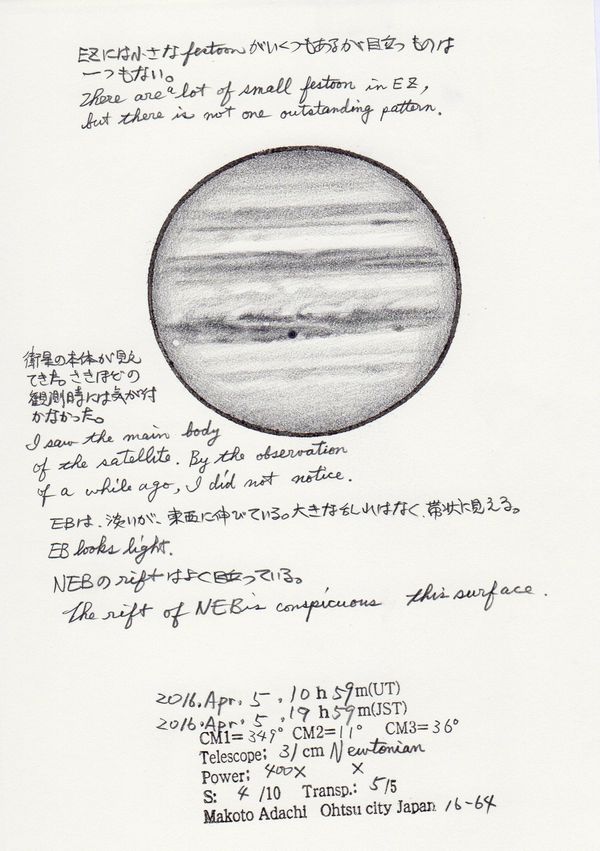 EZには小さなfestoonがいくつもあるが目立つものは
一つもない。
There are a lot of small festoon in EZ,
but there is not one outstanding pattern.
衛星の本体が見え
てきた。さきほどの
観測時には気が付
かなかった。
I saw the main body
of the satellite. By the observation
of a while ago, I did not notice.
EBは、淡いが、東西に伸びている。大きな乱れはなく、帯状に見える。
EB looks light.
NEBのriftはよく目立っている。
The rift of NEB is conspicuous this surface.
2016. Apr. 5 . 10 h 59m(UT)
2016. Apr. 5 . 19 h 59m(JST)
CM1= 349° CM2= 11° CM3= 36°
Telescope; 31 cm Newtonian
Power; 400X X
S: 4 /10 Transp.: 5/5
Makoto Adachi Ohtsu city Japan 16-64